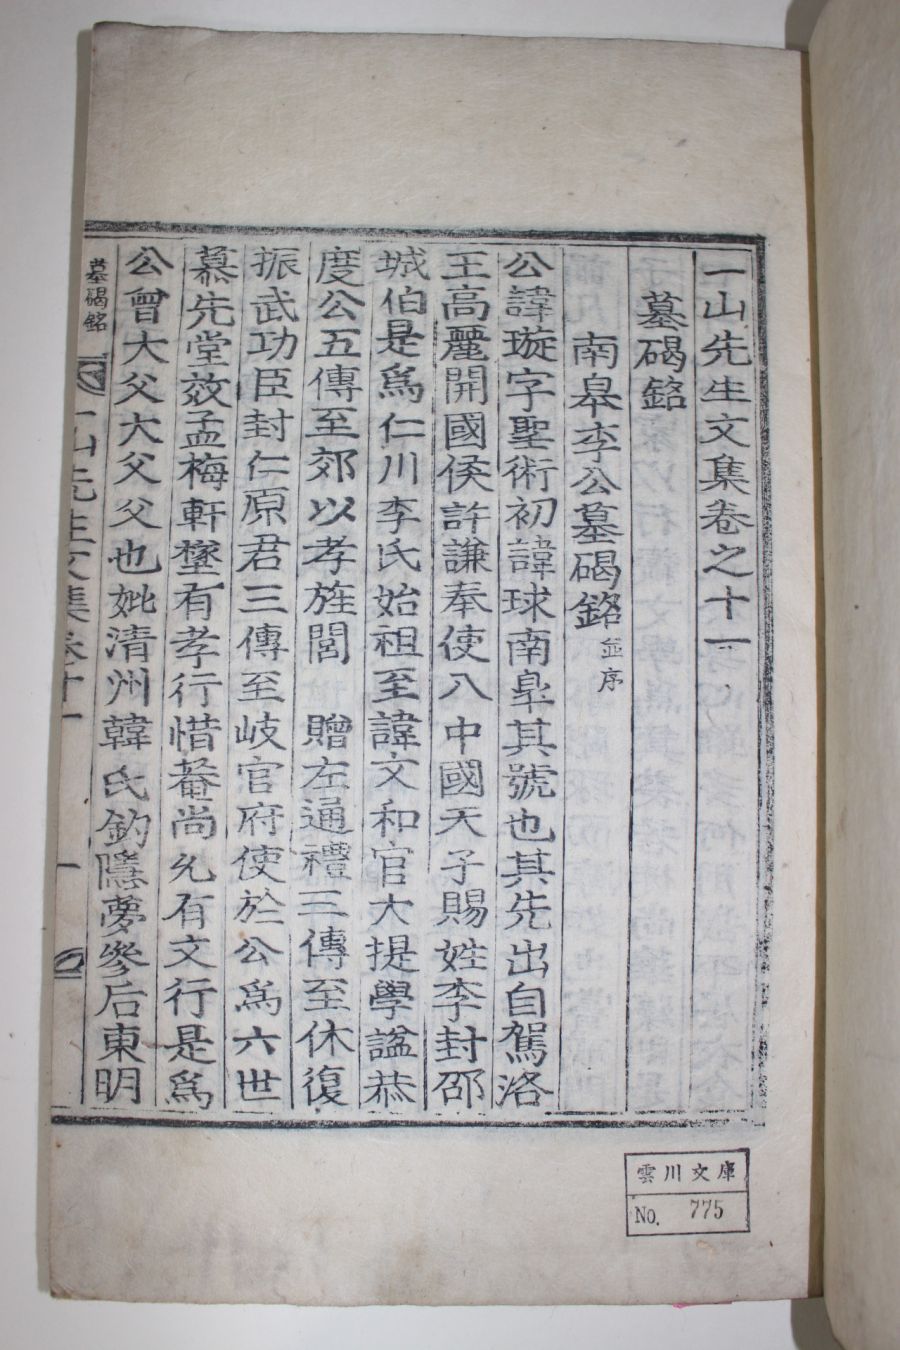 一山先生文集卷之十一
墓碣銘
南皐李公墓碣銘 並序
公諱璇字聖術初諱球南皐其號也其先出自駕洛
王高麗開國侯許謙奉使入中國天子賜姓李封邵
城伯是爲仁川李氏始祖至諱文和官大提學諡恭
度公五傳至郊以孝旌閭 贈左通禮三傳至休復
振武功臣封仁原君三傳至岐官府使於公爲六世
慕先堂效孟梅軒壄有孝行惜菴尚允有文行是爲
公曾大父大父父也妣清州韓氏釣隱夢參后東明
墓碣銘 一山先生文集卷十一 一
雲川文庫
No. 775